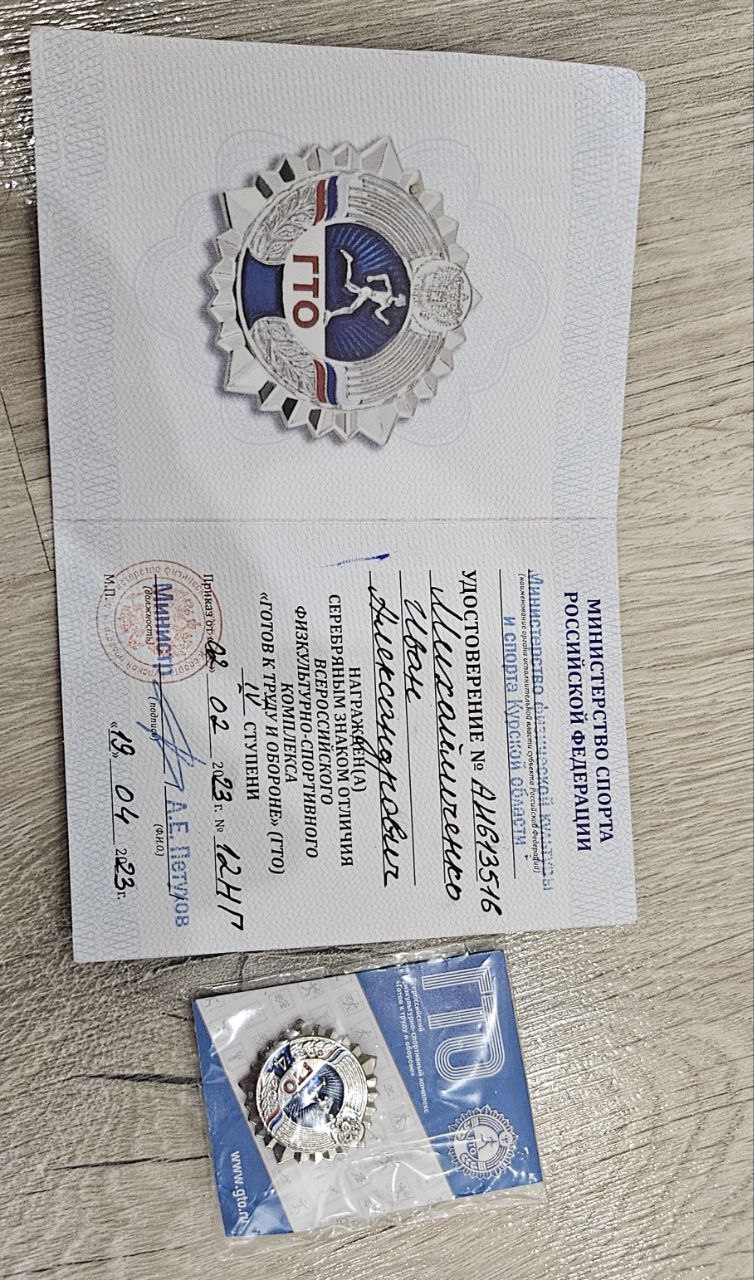 ГТО
МИНИСТЕРСТВО СПОРТА
РОССИЙСКОЙ ФЕДЕРАЦИИ
Министерство физической культуры
(наименование органа исполнительной власти субъекта Российской Федерации)
и спорта Курской области
УДОСТОВЕРЕНИЕ № АН613516
Михайличенко
Иван
Александрович
НАГРАЖДЕН(А)
СЕРЕБРЯНЫМ ЗНАКОМ ОТЛИЧИЯ
ВСЕРОССИЙСКОГО
ФИЗКУЛЬТУРНО-СПОРТИВНОГО
КОМПЛЕКСА
«ГОТОВ К ТРУДУ И ОБОРОНЕ» (ГТО)
IV СТУПЕНИ
Приказ от «02» 02 2023 г. № 12НГ
Министр А.Е. Петухов
(должность) (подпись) (Ф.И.О.)
М.П. «19» 04 2023г.
ГТО
Всероссийский
физкультурно-спортивный комплекс
«Готов к труду и обороне»
ГТО
ГТО
IV
www.gto.ru